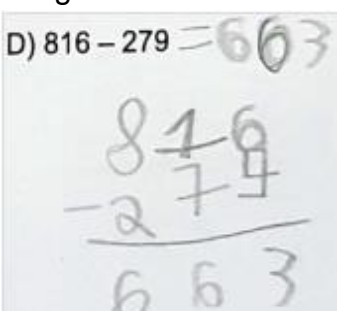 D) 816 – 279 = 663
816
- 279
663